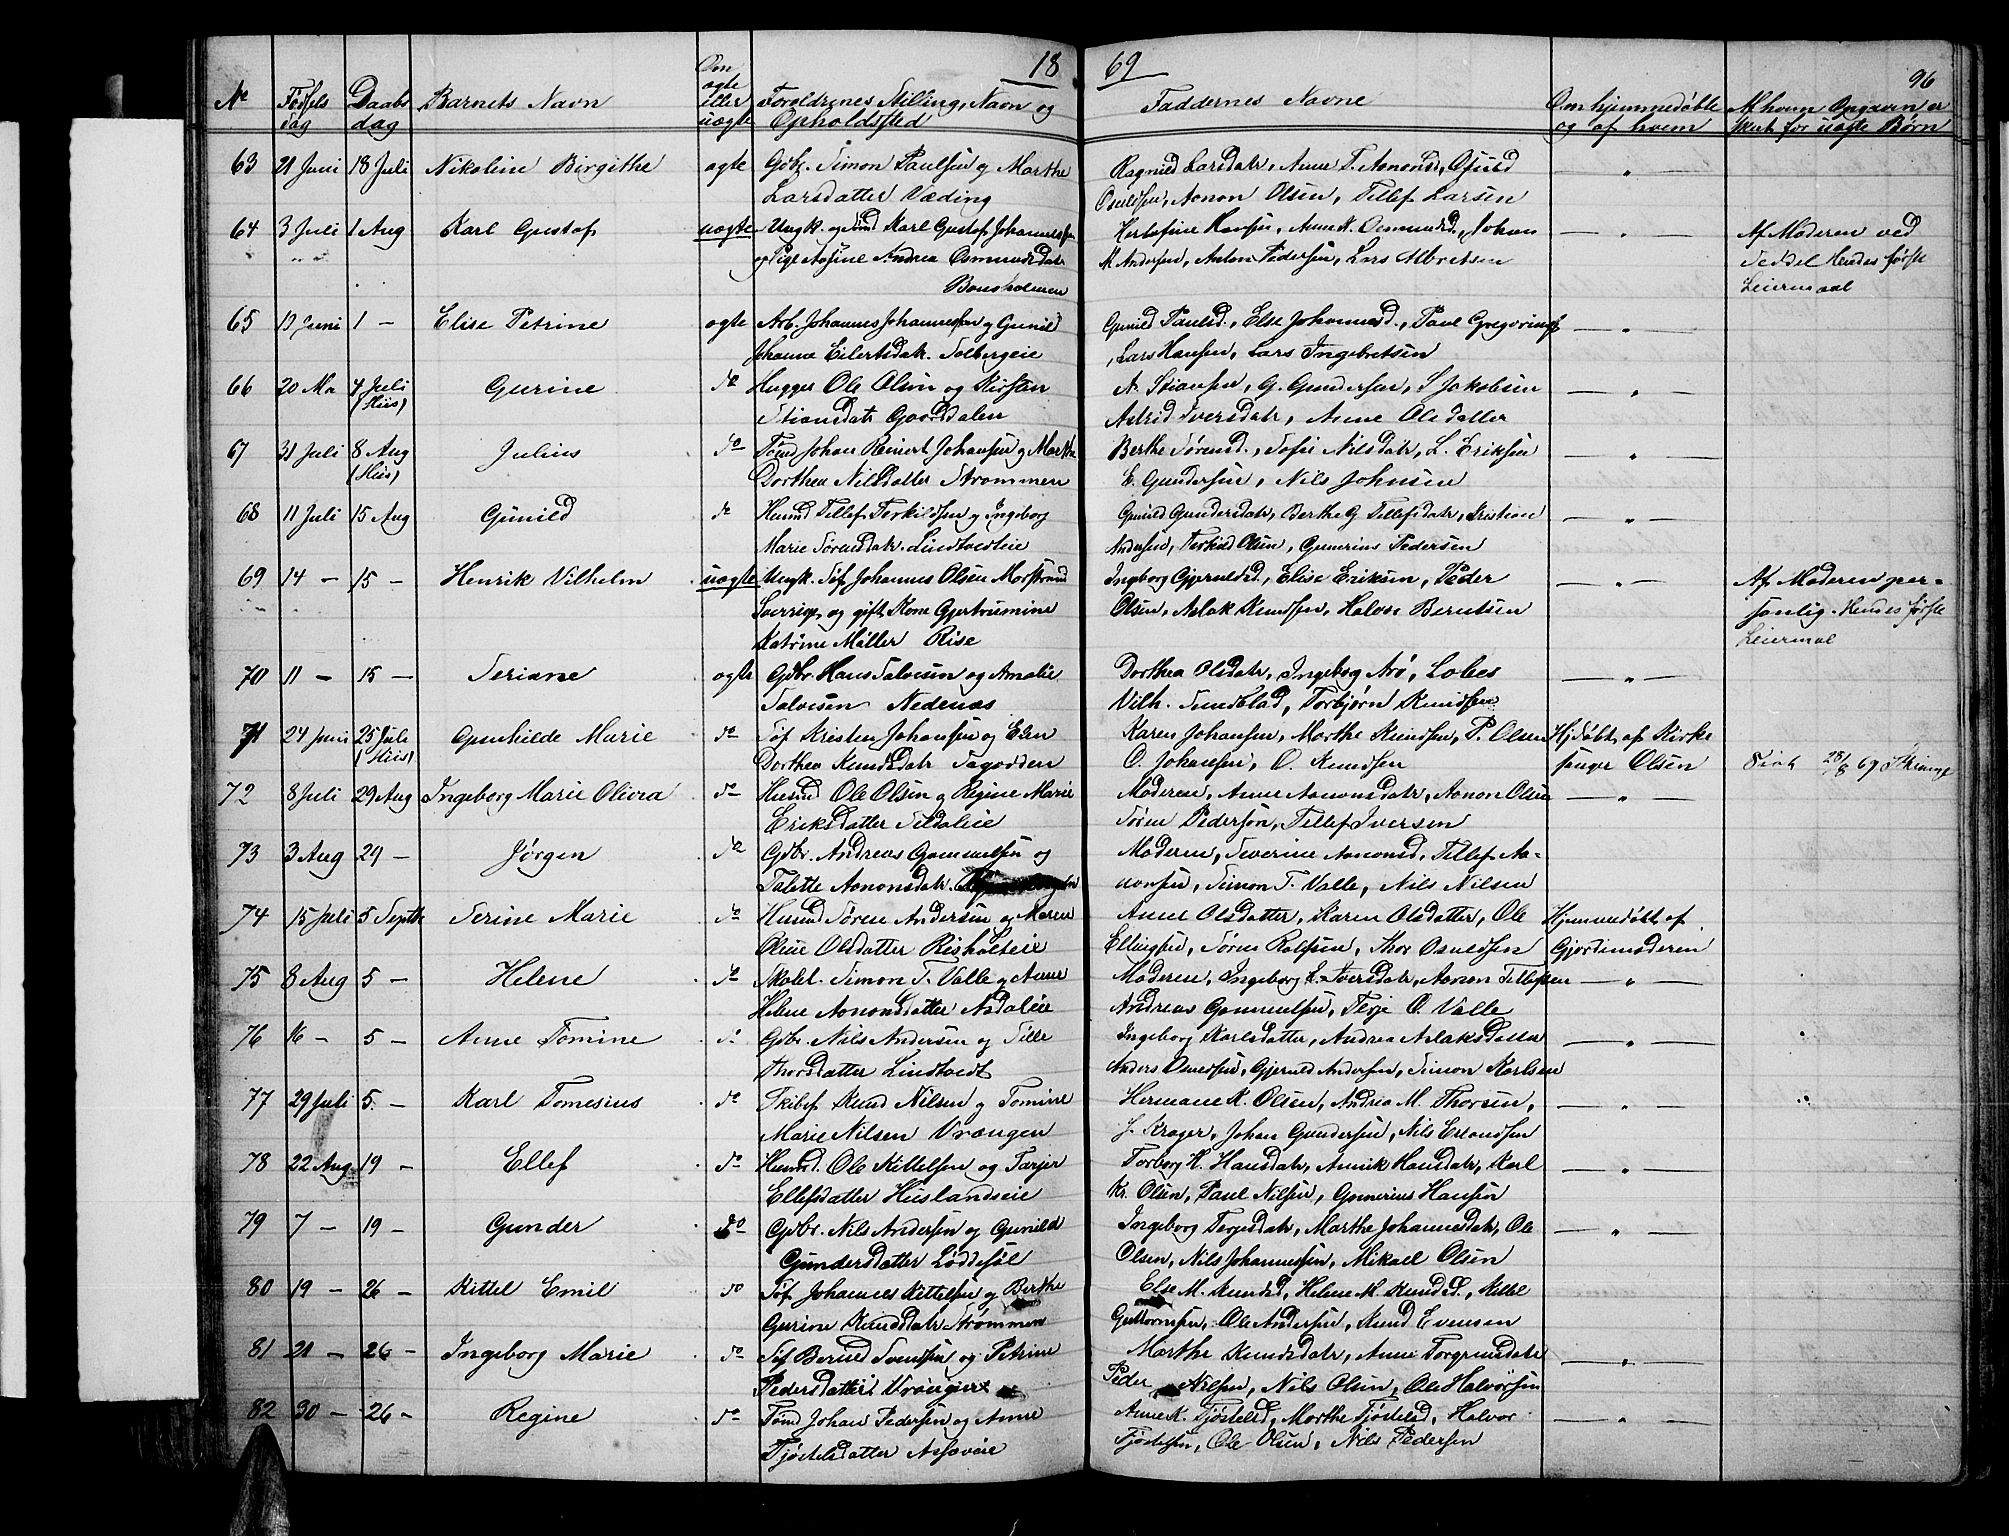 1869
96
No Fødsels Dag Daabs dag Barnets Navn Om ægte eller uægte Foreldrenes Stilling, Navn og Opholdssted Faddernes Navne Om hjemmedøbte og af hvem Af hvem Opgaven er skeet for uægte Børn
63 21 Juni 18 Juli Nikoline Birgithe ægte Gdbr. Simon Paulsen og Marthe Ragnild Larsdatr, Anne T. Aanonsd,
Larsdatter Væding Osuldsen, Aanon Olsen, Tellef Larsen
64 3 Juli 1 Aug Karl Gustaf uægte Ungk. og Karl Gustaf Johannessen Hansen, Anne K. Osmundsd, Johan Af Moderen ved
og Pige Andrea Osmundsdatr M. Andersen, Anton Pedersen, Lars Albretsen Seddel Hendes første
Bonsholmen Leiermaal
65 13 Juni 1 — Elise Petrine ægte Arb. Johannes Johannessen og Gunild Gunild Paulsd., Else Johannesd., Paul Gregoriusen
Johanne Eilertsdatr. Solbergeie Lars Hansen, Lars Ingebretsen
66 20 Ma 4 Juli (Hiis) Gurine do Hugger Ole Olsen og Kirstan N. Stiansen, G. Gundersen, S Jakobsen
Stiansdatr Astrid Iversdatr, Anne Olsdatter
67 31 Juli 8 Aug (Hiis) Julius do Tømd Johan Reinert Johansen og Marthe Berthe Sørensd., Sofie Nilsdatr, L. Eriksen
Dorthea Nilsdatter Strømmen E. Gundersen, Nils Johnsen
68 11 Juli 15 Aug Gunild do Husmd Tellef Terkildsen og Ingeborg Gunild Gundersdatr, Berthe G Tellefsdatr, Kristian
Marie Sørensdatr. Lindtvedteie Andersen, Terkild Olsen, Gunerius Pedersen
69 14 — 15 — Henrik Vilhelm uægte Ungk. Søf Johannes Olsen Ingeborg Gjeruldsd., Elise Eriksen, Peder Af Moderen per-
Sverrige, og gift Kone Gjertrumine Olsen, Aslak Knudsen, Halvor Berntsen sonlig. Hendes første
Katrine Møller Rise Leiermaal
70 11 — 15 — Seriane ægte Gdbr. Hans Salvesen og Amalie Dorthea Olsdatr, Ingeborg Arø,
Salvesen Nedenæs Vilh. Sundblad, Torbjørn Knudsen
71 24 Juni 25 Juli (Hiis) Gunhilde Marie do Søf Kristen Johansen og Elen Karen Johansen, Marthe Knudsen, P. Olsen Hjdøbt af Kirke
Dorthea Knudsdatr O. Johansen, O. Knudsen sanger Olsen 28/8 69
72 8 Juli 29 Aug Ingeborg Marie Olivia do Husmd Ole Olsen og Regine Marie Moderen, Anne Aanonsdatr, Aanon Olsen
Eriksdatter Søren Pedersen, Tellef Iversen
73 3 Aug 29 — Jørgen do Gdbr. Andreas Gammelsen og Moderen, Severine Aanonsd, Tellef Aa-
Talette Aanonsdatr. nonsen, Simon T. Valle, Nils Nilsen
74 15 Juli 5 Septb Serine Marie do Husmd Søren Andersen og Maren Anne Olsdatter, Karen Olsdatter, Ole Hjemmedøbt af
Oline Olsdatter Risholteie Ellingsen, Søren Rolfsen, Thor Osuldsen Gjordemoderen
75 8 Aug 5 — Helene do Skolel. Simon T. Valle og Anne Moderen, Ingeborg L. Iversdatr, Aanon Tellefsen
Helene Aanonsdatter Asdaleie Andreas Gammelsen, Terje O. Valle
76 16 — 5 — Anne Tomine do Gdbr. Nils Andersen og Sille Ingeborg Karlsdatter, Andrea Aslaksdatter
Thorsdatter Lindtvedt Anders Osuldsen, Gjeruld Andersen, Simon Karlsen
77 29 Juli 5. — Karl Tomesius do Skibsf Knud Nilsen og Tomine Hermane K. Olsen, Andrea M. Thorsen,
Marie Nilsen Vrængen J. Krager, Johan Gundersen, Nils Erlandsen
78 22 Aug 19 — Ellef do Husmd. Ole Kittelsen og Tarjer Torborg K. Hansdatr, Annik Hansdatr, Karl
Ellefsdatter Huslandseie Kr. Olsen, Paul Nilsen, Gunerius Hansen
79 7 — 19 — Gunder do Gdbr. Nils Andersen og Gunild Ingeborg Terjesdatr, Marthe Johannesdatr, Ole
Gundersdatter Løddesøl Olsen, Nils Johannessen, Mikael Olsen
80 19 — 26 — Kittel Emil do Søf. Johannes Kittelsen og Berthe Else M. Knudsd, Helene M. Knudsd., Kittel
Gurine Knudsdatr Strømmen Guttormsen, Ole Andersen, Knud Evensen
81 21 — 26 — Ingeborg Marie do Søf Bernt Svendsen og Petrine Marthe Knudsdatr, Anne Torgrimsdatr
Pedersdatter Vrængen Peder Nilsen, Nils Olsen, Ole Halvorsen
82 30 — 26 — Regine do Tømd Johan Pedersen og Anne Anne K. Tjøstelsd, Marthe Tjøstelsd, Halvor
Tjøstelsdatter Tjøstelsen, Ole Olsen, Nils Pedersen